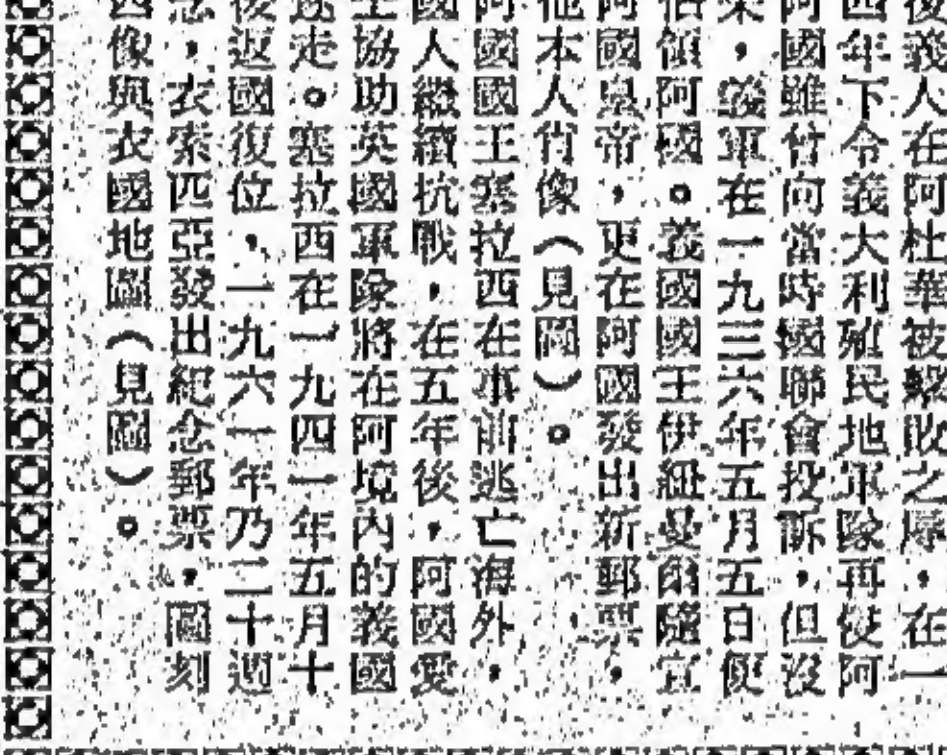 後義人在阿杜華被擊敗之辱，在一
四年下令義大利殖民地軍隊再侵阿
阿國雖曾向當時國聯會投訴，但沒
果，義軍在一九三六年五月五日便
佔領阿國。義國國王伊紐曼爾隨宣
阿國皇帝，更在阿國發出新郵票，
他本人肖像（見圖）。
阿國國王塞拉西在事前逃亡海外，
國人繼續抗戰，在五年後，阿國愛
協助英國軍隊將在阿境內的義國
逐走。塞拉西在一九四一年五月十
後返國復位，一九六一年乃二十週
念，衣索匹亞發出紀念郵票，圖刻
西像與衣國地圖（見圖）。